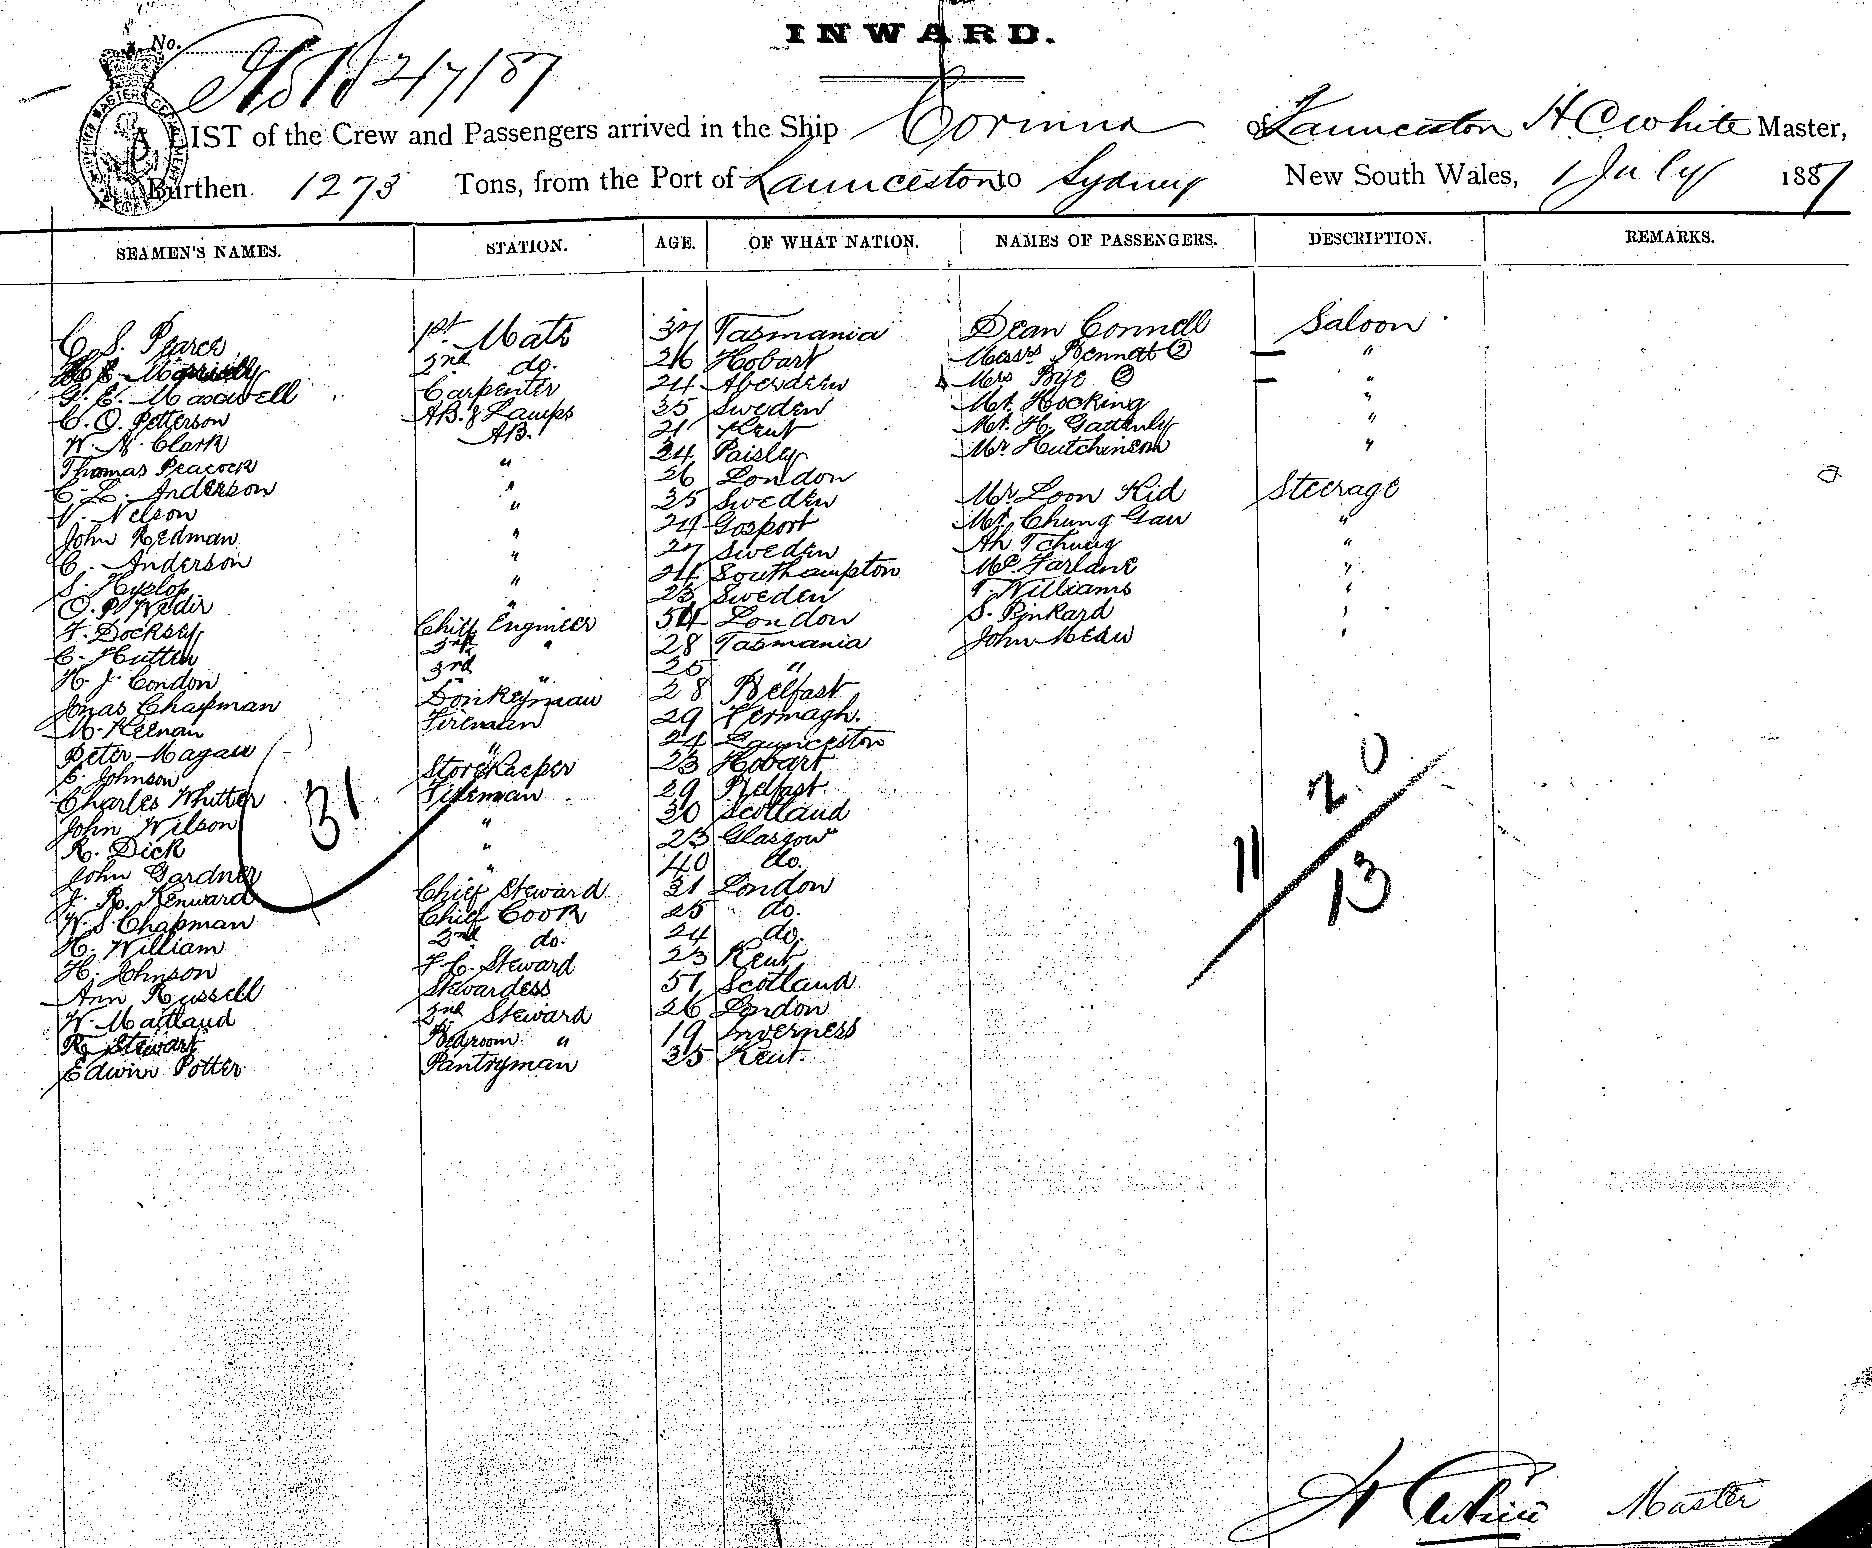 INWARD.
No.
2/7/87
A LIST of the Crew and Passengers arrived in the Ship Corinna of Launceston H C White Master,
Burthen 1273 Tons, from the Port of Launceston to Sydney New South Wales, 1 July 1887
SEAMEN'S NAMES. STATION. AGE. OF WHAT NATION. NAMES OF PASSENGERS. DESCRIPTION. REMARKS.
C. S. Pearce 1st. Mate 37 Tasmania Dean Connell Saloon
2nd do. 26 Hobart Messrs Bennett 2 "
G. E. Maxwell Carpenter 24 Aberdeen Mrs Bye 2 "
C. O. Petterson AB. & Lamps 35 Sweden Mr. Hocking "
W. N. Clark AB. 21 Kent Mr. H. "
Thomas Peacock " 24 Paisley Mr Hutchinson "
C. L. Anderson " 26 London
N. Nelson " 35 Sweden Mr Loon Kid Steerage
John Redman " 24 Gosport Mr. Chung Gaw "
C. Anderson " 27 Sweden Ah Tchung "
S. Hyslop " 24 Southampton McFarlane "
" 23 Sweden T Williams "
F. Docksey Chief Engineer 54 London S. Pinkard "
C. Hutton 2nd " 28 Tasmania John Mead "
H. J. Condon 3rd " 25 "
Jonas Chapman Donkeyman 28 Belfast
M. Keenan Fireman 29
Peter Magan " 24 Launceston
C. Johnson Storekeeper 23 Hobart
Charles Whitter Fireman 29 Belfast
John Wilson " 30 Scotland
R. Dick " 23 Glasgow
John Gardner " 40 do.
J. R. Kenward Chief Steward 31 London
W. S. Chapman Chief Cook 25 do.
H. William 2nd do. 24 do.
H. Johnson F. C. Steward 23 Kent
Ann Russell Stewardess 51 Scotland
W. Maitland 2nd Steward 26 London
R. Stewart Bedroom " 19 Inverness
Edwin Potter Pantryman 35 Kent.
31
20
11 / 13
H C White Master